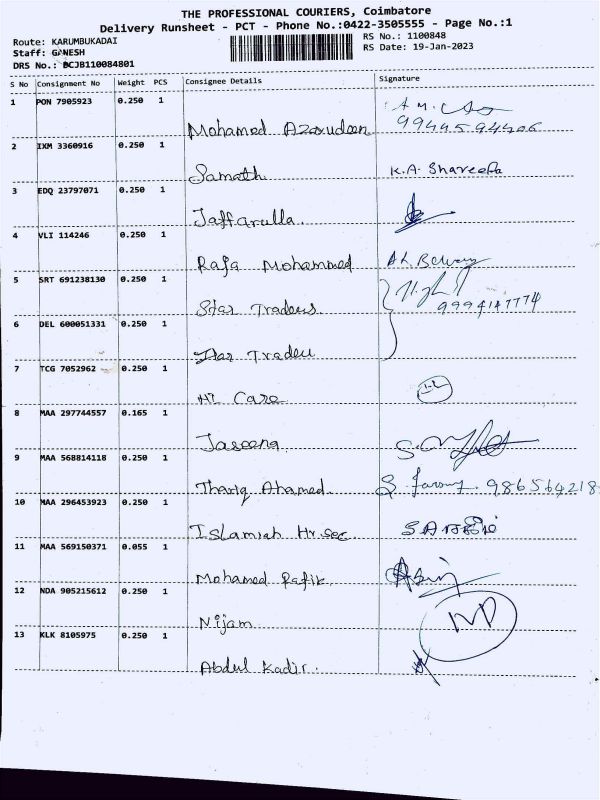 THE PROFESSIONAL COURIERS, Coimbatore
Delivery Runsheet - PCT - Phone No.:0422-3505555 - Page No.:1
Route: KARUMBUKADAI
RS No.: 1100848
Staff: GANESH
RS Date: 19-Jan-2023
DRS No.: BCJB110084801
S No Consignment No Weight PCS Consignee Details Signature
1 PON 7905923 0.250 1
Mohamed Azarudeen 9944594406
2 IXM 3360916 0.250 1
Samath K.A. Shareefa
3 EDQ 23797071 0.250 1
Jaffarulla.
4 VLI 114246 0.250 1
Rafa Mohammed
5 SRT 691238130 0.250 1
Star Traders 9994147774
6 DEL 600051331 0.250 1
Star Trader
7 TCG 7052962 0.250 1
Hi Care
8 MAA 297744557 0.165 1
Jaseena
9 MAA 568814118 0.250 1
Thariq Ahamed. 986564218
10 MAA 296453923 0.250 1
Islamiah Hr.Sec.
11 MAA 569150371 0.055 1
Mohamed Rafik
12 NDA 905215612 0.250 1
Nijam
13 KLK 8105975 0.250 1
Abdul Kadir.